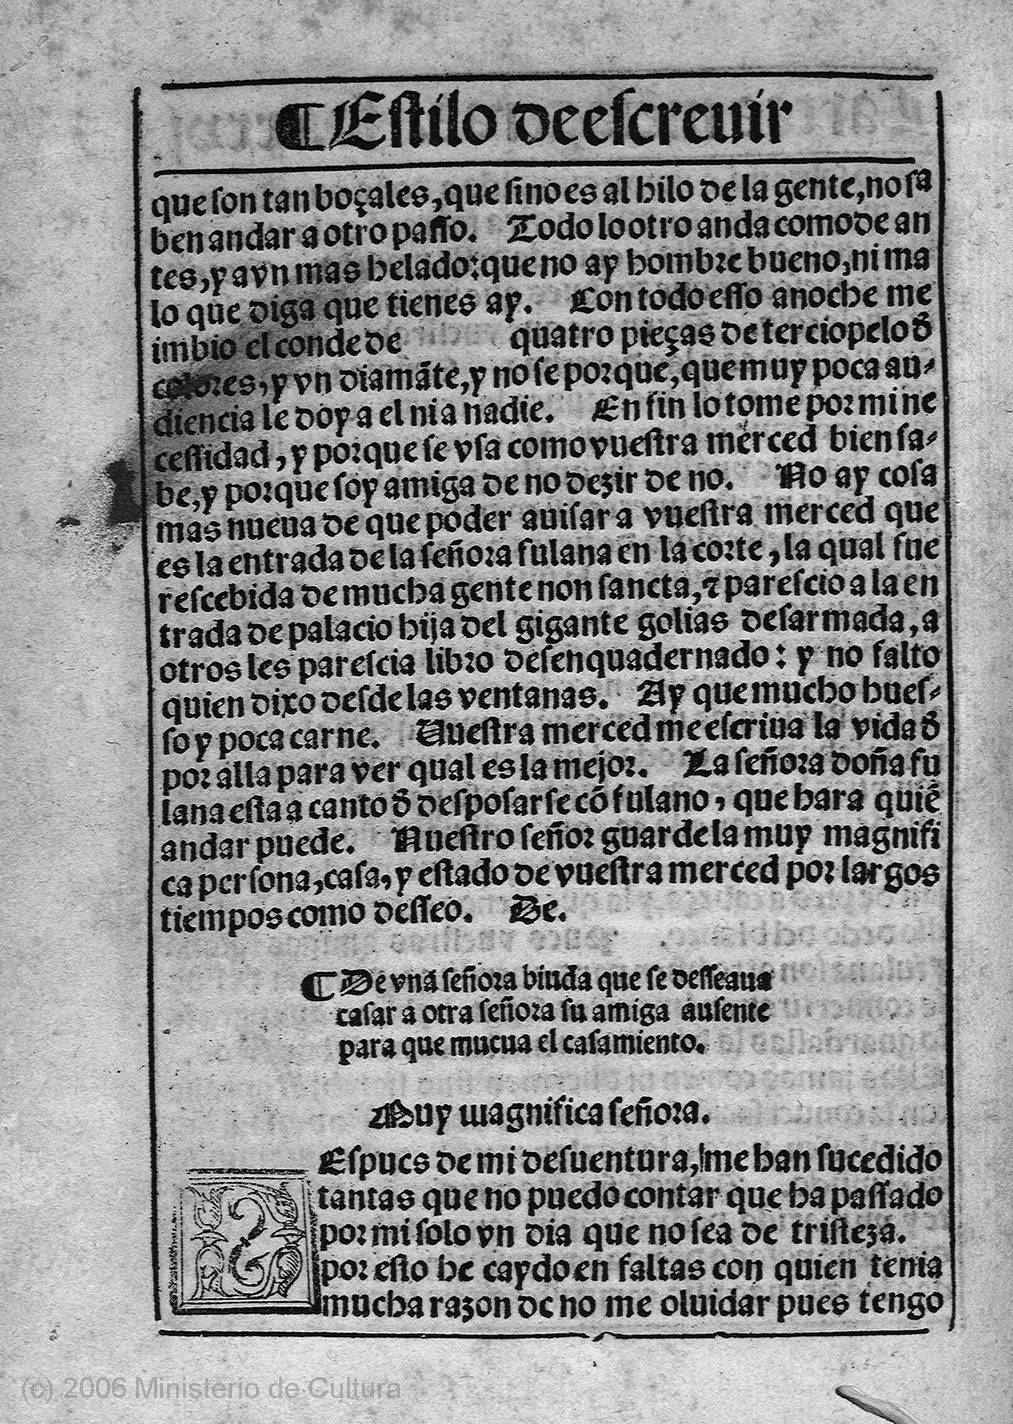 ¶Estilo deescreuir
que son tan boçales, que sino es al hilo de la gente, no sa
ben andar a otro passo. Todo lo otro anda como de an
tes, y avn mas helado: que no ay hombre bueno, ni ma
lo que diga que tienes ay. Con todo esso anoche me
imbio el conde de quatro pieças de terciopelo đ
colores, y vn diamãte, y no se porque, que muy poca au-
diencia le doy a el nia nadie. En fin lo tome por mi ne
cessidad, y porque se vsa como vuestra merced bien sa-
be, y porque soy amiga de no dezir de no. No ay cosa
mas nueua de que poder auisar a vuestra merced que
es la entrada de la señora fulana en la corte, la qual fue
rescebida de mucha gente non sancta, ⁊ parescio a la en
trada de palacio hija del gigante golias desarmada, a
otros les parescia libro desenquadernado: y no falto
quien dixo desde las ventanas. Ay que mucho hues-
so y poca carne. Vuestra merced me escriua la vida đ
por alla para ver qual es la mejor. La señora doña fu
lana esta a canto đ desposarse cõ fulano, que hara quiẽ
andar puede. Nuestro señor guarde la muy magnifi
ca persona, casa, y estado de vuestra merced por largos
tiempos como desseo. De.
¶De vna señora biuda que se desseaua
casar a otra señora su amiga ausente
para que mueua el casamiento.
Muy magnifica señora.
DEspues de mi desuentura, me han sucedido
tantas que no puedo contar que ha passado
por mi solo vn dia que no sea de tristeza.
por esto he caydo en faltas con quien tenia
mucha razon de no me oluidar pues tengo
(c) 2006 Ministerio de Cultura